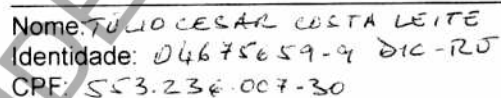 Nome: TÚLIO CESAR COSTA LEITE
Identidade: 04675659-9 DIC-RJ
CPF: 553.236.007-30